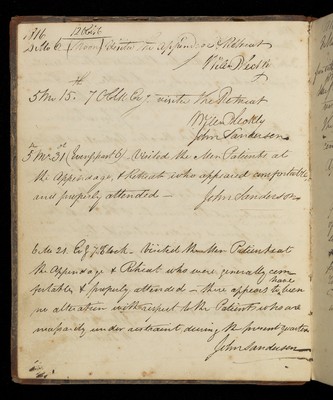 1816
(Noon) visited the Appendage & Retreat
5 Mo. 15th 7 O'Clk Evg visited the Retreat
John Sanderson
5 Mo. 31st Visited the Men Patients at
the Appendage, & Retreat who appeared comfortable
and properly attended — John Sanderson
6 Mo 21. Evg 7 Clock — Visited the Men Patients at
the Appendage & Retreat who were generally com
fortable & properly attended — there appears to have been
no alteration with respect to the Patients who are
necessarily under restraint during the present quarter
John Sanderson